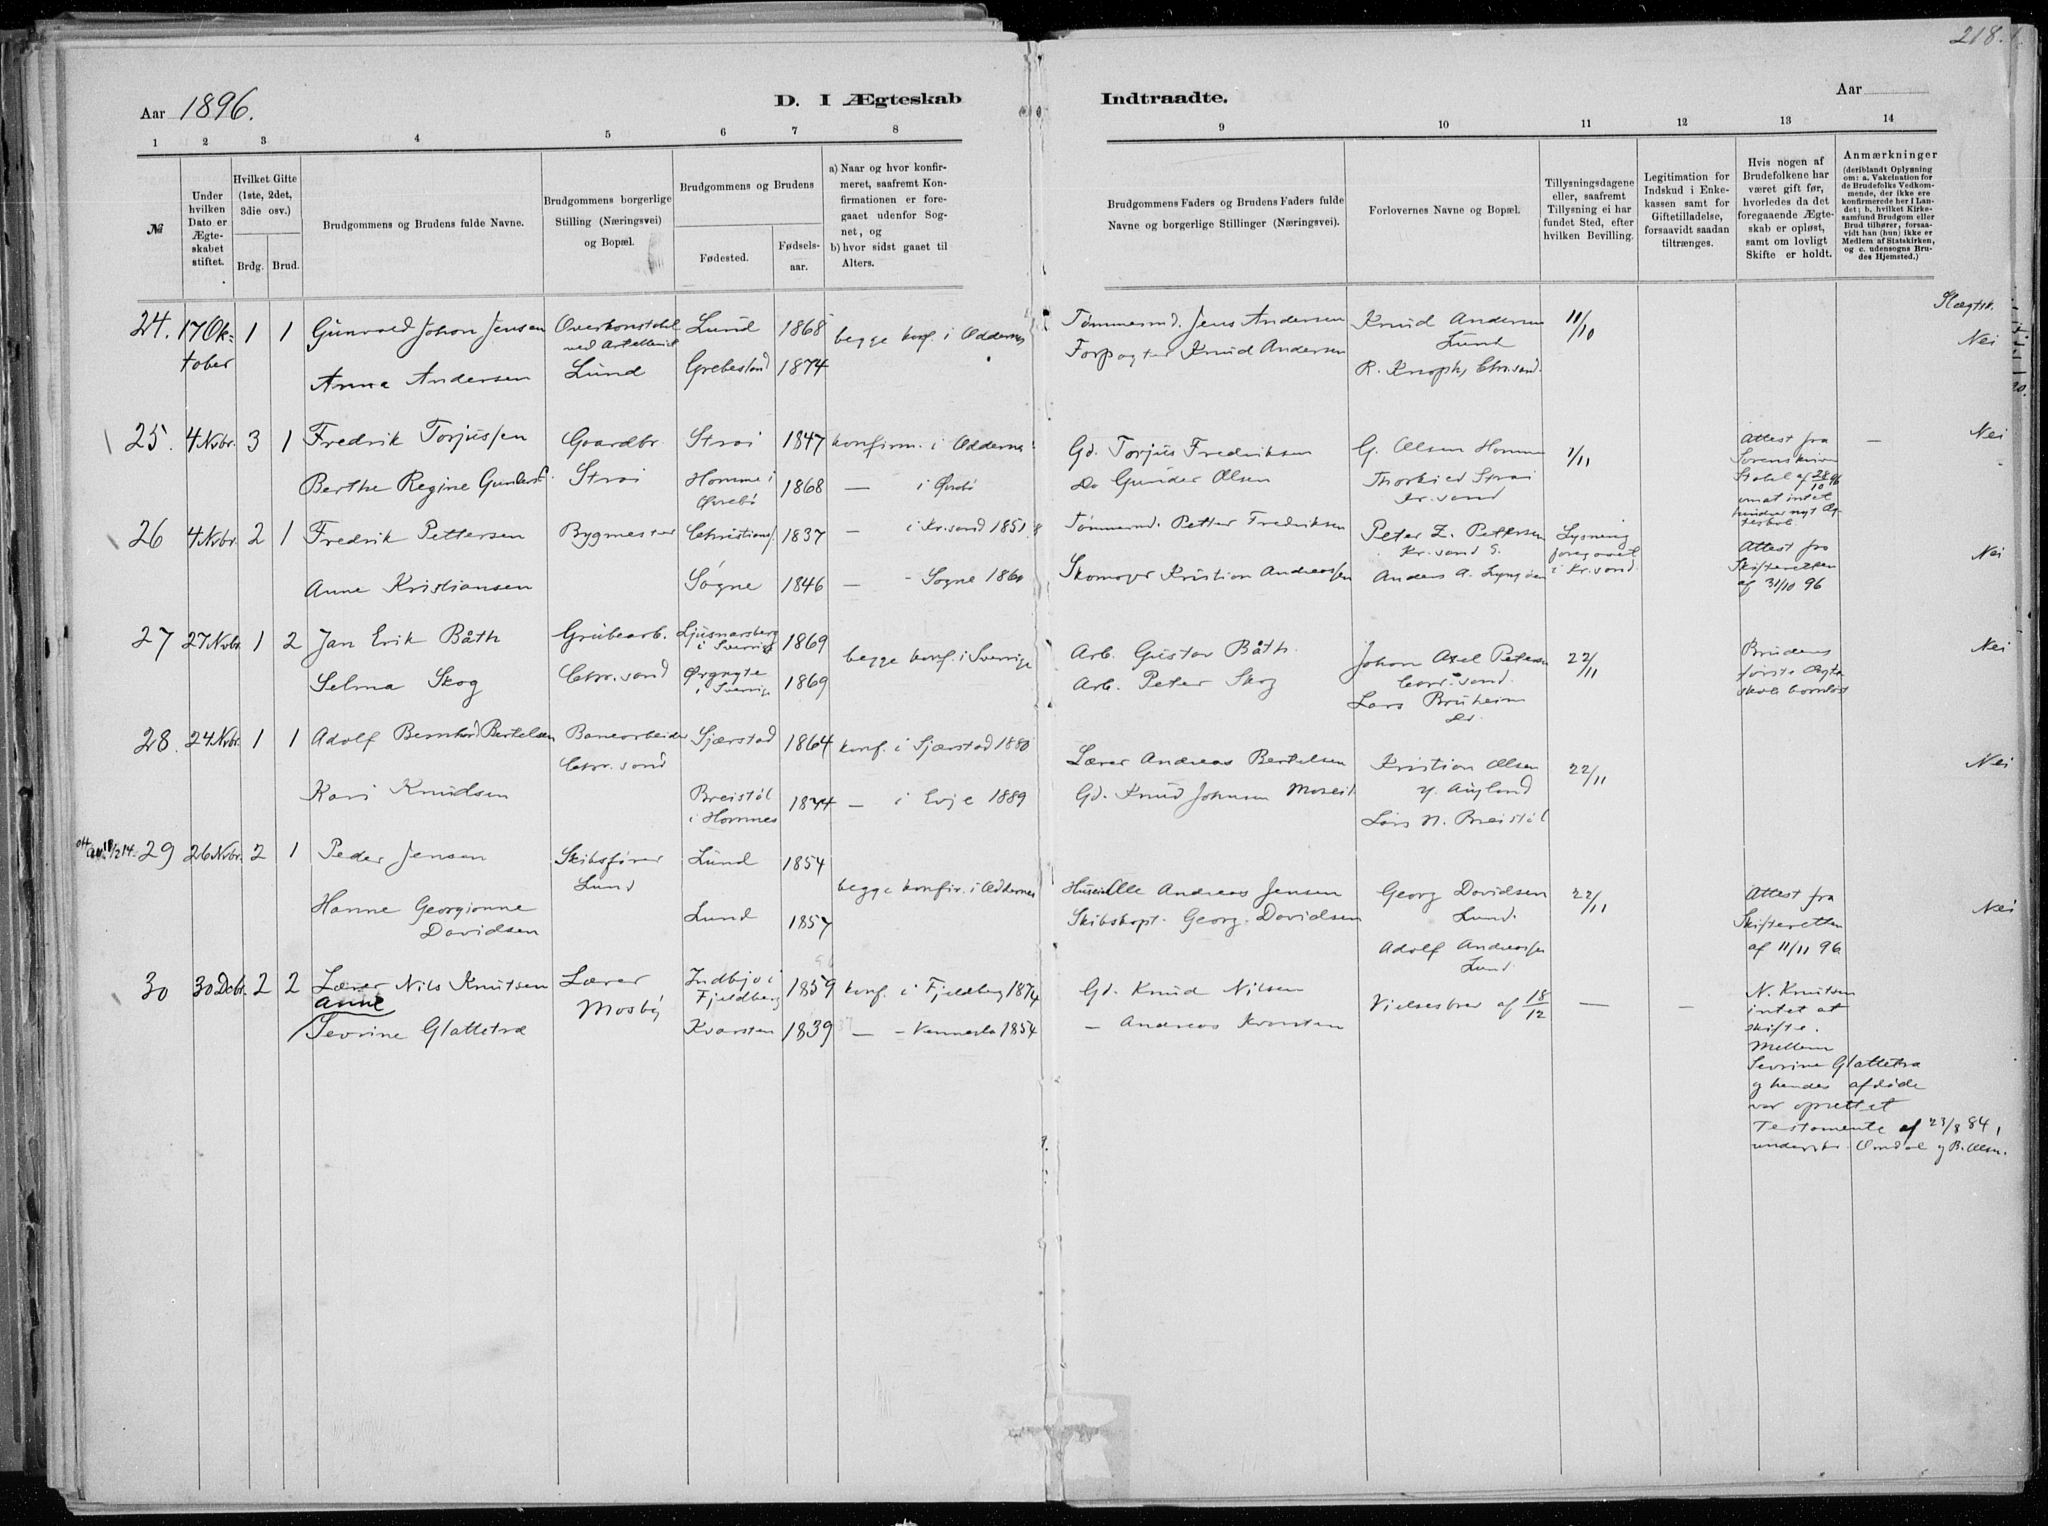 218.
Aar 1896.
D. I Ægteskab
Indtraadte.
Aar
1 2 3 4 5 6 7 8 9 10 11 12 13 14
№
Under hvilken Dato er Ægteskabet stiftet.
Hvilket Gifte (1ste, 2det, 3die osv.)
Brdg. Brud.
Brudgommens og Brudens fulde Navne.
Brudgommens borgerlige Stilling (Næringsvei) og Bopæl.
Brudgommens og Brudens
Fødested.
Fødsels-aar.
a) Naar og hvor konfirmeret, saafremt Konfirmationen er foregaaet udenfor Sognet, og
b) hvor sidst gaaet til Alters.
Brudgommens Faders og Brudens Faders fulde Navne og borgerlige Stillinger (Næringsvei).
Forlovernes Navne og Bopæl.
Tillysningsdagene eller, saafremt Tillysning ei har fundet Sted, efter hvilken Bevilling.
Legitimation for Indskud i Enkekassen samt for Giftetilladelse, forsaavidt saadan tiltrænges.
Hvis nogen af Brudefolkene har været gift før, hvorledes da det foregaaende Ægteskab er opløst, samt om lovligt Skifte er holdt.
Anmærkninger (deriblandt Oplysning om: a. Vakcination for de Brudefolks Vedkommende, der ikke ere konfirmerede her i Landet; b. hvilket Kirkesamfund Brudgom eller Brud tilhører, forsaavidt han (hun) ikke er Medlem af Statskirken, og c. udensogns Brudes Hjemsted.)
Slægtsk.
24. 17 Ok- 1 1 Gunvald Johan Jensen Lund 1868 begge konf. i Oddernes Tømmermd. Jens Andersen Knud Andersen 11/10 Nei
tober Anna Andersen Lund Grebestad 1874 Forpagter Knud Andersen Lund
R. Knoph, Chr.sand.
25. 4 Nvbr. 3 1 Fredrik Torjussen Gaardbr. Strai 1847 konfirm. i Oddernes Gd. Torjus Fredriksen G. Olsen Homme 1/11 Attest fra — Nei
Berthe Regine Strai Homme i Øvrebø 1868 — i Øvrebø Do Gunder Olsen Strai Sorenskriver
Kr.sand
26 4 Nvbr. 2 1 Fredrik Pettersen Bygmester 1837 — i Kr.sand 1851 Tømmermd. Petter Fredriksen Peter Z. Pettersen Lysning Attest fra Nei
Kr.sand S. foregaaet Skifteretten
Anne Kristiansen Søgne 1846 — - Søgne 1860 Skomager Kristian Andreassen Anders A. i Kr.sand. af 31/10 96
27 27 Nvbr. 1 2 Jan Erik Båth Grubearb. Ljusnarsberg i Sverrig 1869 begge konf. i Sverrige Arb. Gustav Båth. Johan Axel Petersen 22/11 Brudens Nei
Selma Skog Chr.sand i Sverrig 1869 Arb. Peter Skog Chr.sand. første Ægte-
Lars Bruheim skab barnløst
do.
28. 24 Nvbr. 1 1 Adolf Bernhard Bertelsen Banearbeider Sjærstad 1864 konf. i Sjærstad 1880 Lærer Andreas Bertelsen Kristian Olsen 22/11 Nei
Chr.sand
Kari Knudsen Breistøl i Hornnes 1874 — i Evje 1889 Gd. Knud Johnsen Augland
Lars N. Breistøl
29 26 Nvbr. 2 1 Peder Jensen Skibsfører Lund 1854 begge konfir. i Oddernes Ole Andreas Jensen Georg Davidsen 22/11 Attest fra Nei
Lund Lund.
Hanne Georgianne Davidsen Lund 1857 Skibskapt. Georg Davidsen Adolf Andreassen Skifteretten
Lund. af 11/11 96
30 30 Dcbr. 2 2 Lærer Nils Knutsen Lærer Indbjo i Fjeldberg 1859 konf. i Fjeldberg 1874 Gd. Knud Nilsen Vielsesbrev af 18/12 — — N. Knutsen
Anne Mosby intet at
Sevrine Glattetræ Kvarsten 1839 — - Vennesla 1854 — Andreas Kvarsten skifte.
Mellem
Sevrine Glattetræ
og hendes afdøde
var oprettet
Testamente af 23/8 84,
underskr. Omdal og B. Olsen.